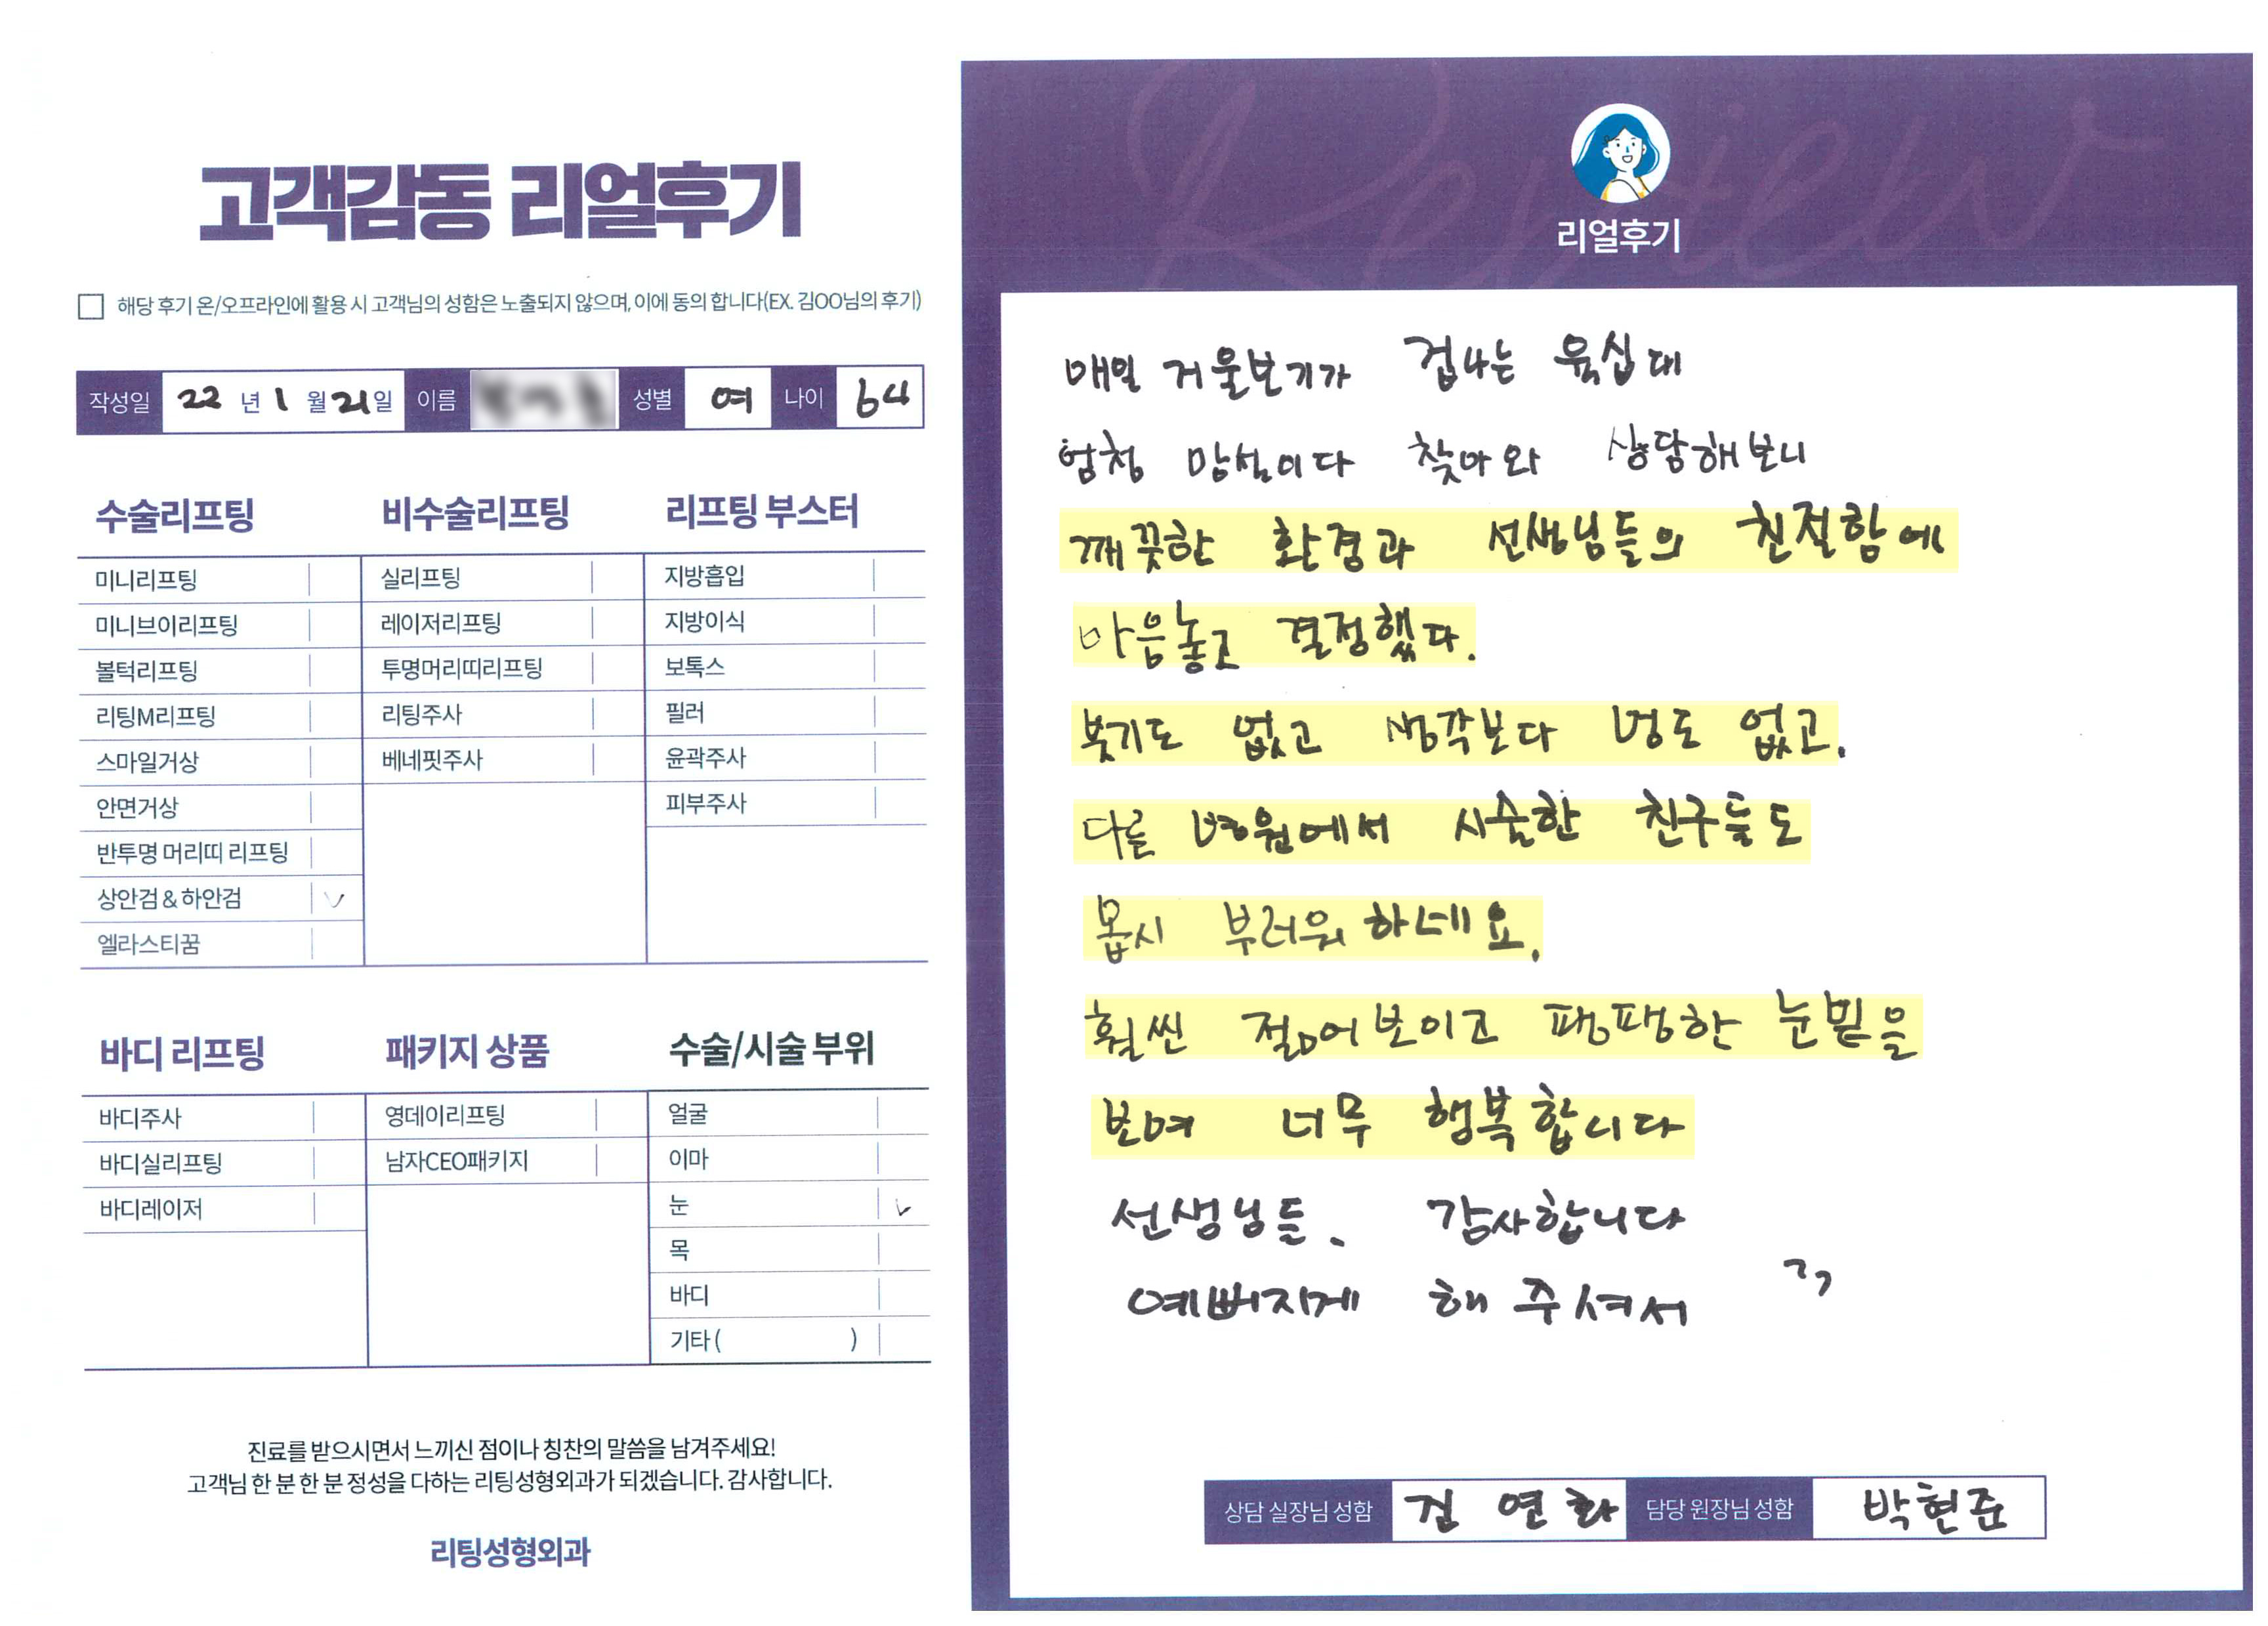 고객감동 리얼후기
해당 후기 온/오프라인에 활용 시 고객님의 성함은 노출되지 않으며, 이에 동의 합니다(EX. 김OO님의 후기)
작성일 22 년 1 월 21 일 이름 성별 여 나이 64
수술리프팅 비수술리프팅 리프팅 부스터
미니리프팅 실리프팅 지방흡입
미니브이리프팅 레이저리프팅 지방이식
볼턱리프팅 투명머리띠리프팅 보톡스
리팅M리프팅 리팅주사 필러
스마일거상 베네핏주사 윤곽주사
안면거상 피부주사
반투명 머리띠 리프팅
상안검 & 하안검
엘라스티꿈
바디 리프팅 패키지 상품 수술/시술 부위
바디주사 영데이리프팅 얼굴
바디실리프팅 남자CEO패키지 이마
바디레이저 눈
목
바디
기타 ( )
진료를 받으시면서 느끼신 점이나 칭찬의 말씀을 남겨주세요!
고객님 한 분 한 분 정성을 다하는 리팅성형외과가 되겠습니다. 감사합니다.
리팅성형외과
Review
리얼후기
매일 거울보기가 겁나는 육십대
엄청 망설이다 찾아와 상담해보니
깨끗한 환경과 선생님들의 친절함에
마음놓고 결정했다.
붓기도 없고 생각보다 멍도 없고.
다른 병원에서 시술한 친구들도
몹시 부러워 하네요.
훨씬 젊어보이고 팽팽한 눈밑을
보여 너무 행복합니다
선생님들. 감사합니다
예뻐지게 해 주셔서 ㄱㄱ
상담 실장님 성함 김연화 담당 원장님 성함 박현준